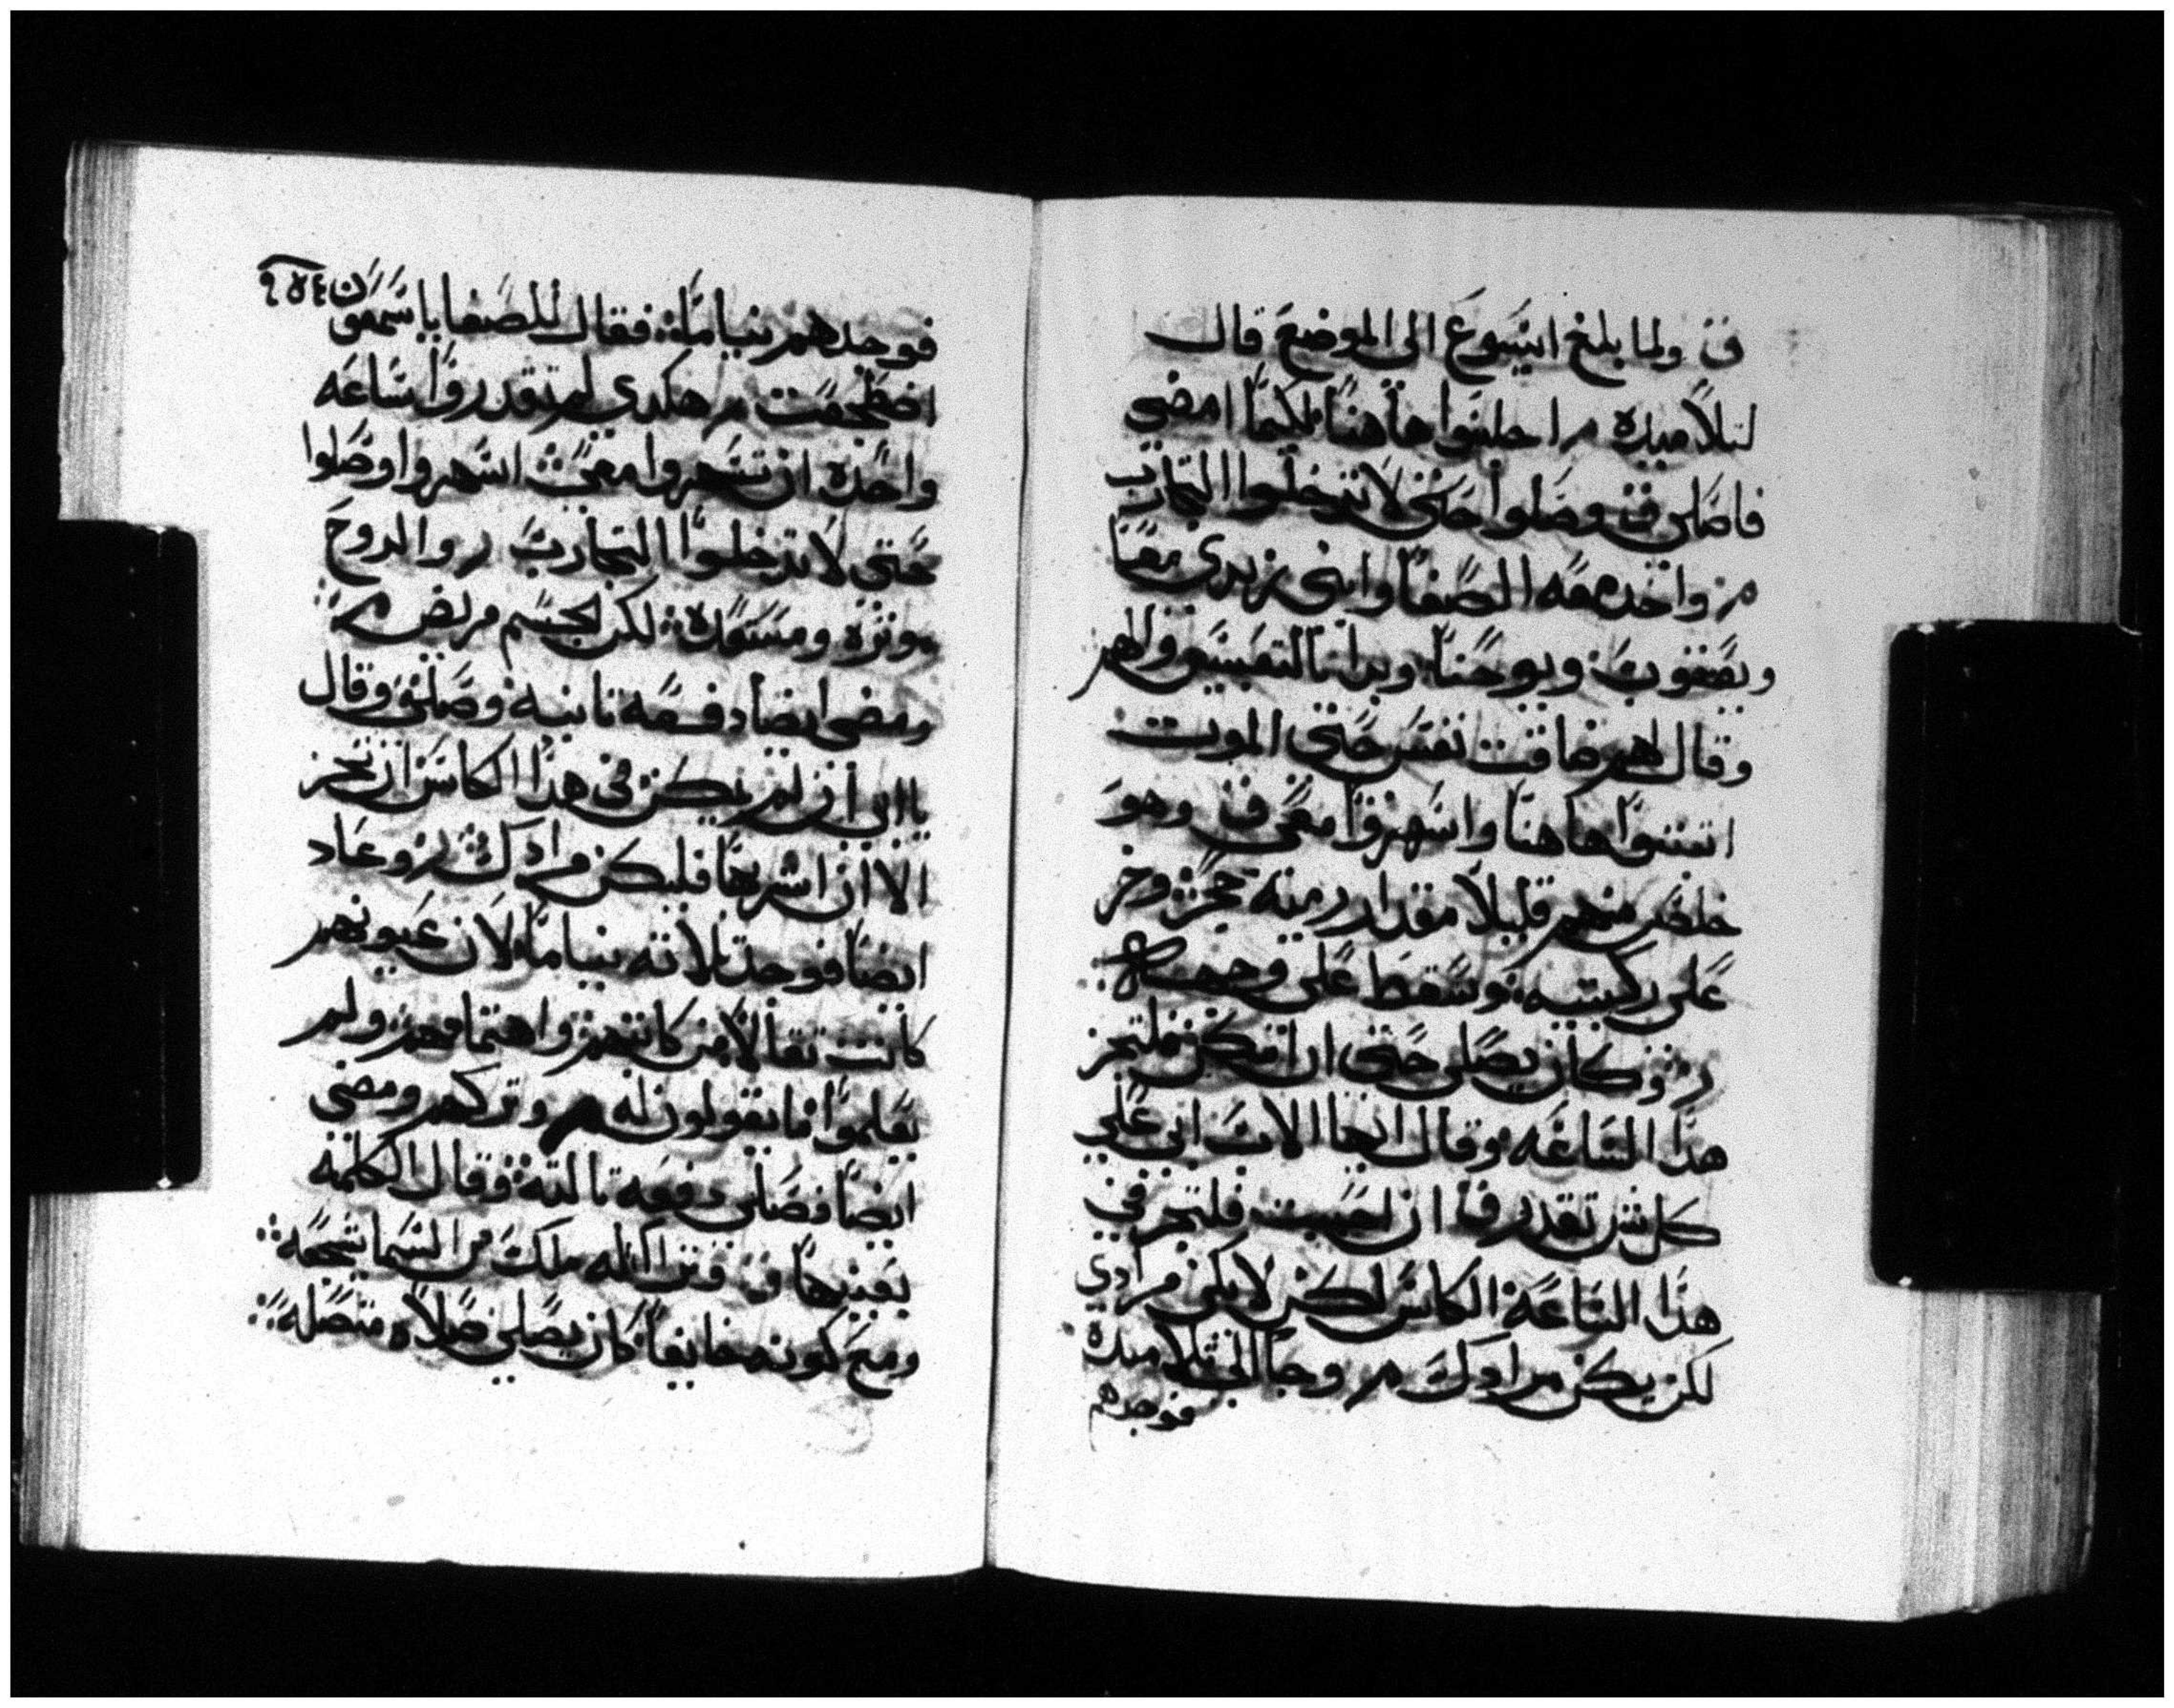 ق ولما بلغ ايسوع الى الموضع قال
لتلاميده مر اجلسوا هاهنا لكيما امضي
فاصلي ق وصلوا حتى لا تدخلوا التجارب
مر واخد معه الصفا وابني زبدي معا
ويعقوب ويوحنا وبدا بالتعبيس والهم
وقال لهم ضاقت نفسي حتى الموت
اتبتوا هاهنا واسهروا معي ق وهو
خلص منهم قليلا مقدار رمية حجر وخر
على ركبتيه وسقط على وجهه
ر وكان يصلي حتى ان امكن فلتجز
هدا الساعه وقال ايها الاب ابي على
كل شي تقدر ق ان احببت فلتجز في
هدا الساعة الكاس لكن لا يكن مرادي
لكن يكن مرادك مر وجا الى تلاميده
فوجدهم
٢٥٤
فوجدهم نياما فقال للصفا يا شمعون
اضطجعت مر هكدي لم تقدروا ساعه
واحده ان تسهروا معي اسهروا وصلوا
حتى لا تدخلوا التجارب ر والروح
موثره ومستعدة لكن الجسم مريض مر
ومضى ايضا دفعه تانية وصلى وقال
يا ابي ان لم يكن في هدا الكاس ان تجز
الا ان اشربها فليكن مرادك ر وعاد
ايضا فوجد تلاته نياما لان عيونهم
كانت تقالا من كابتهم واهتمامهم ولم
يعلموا ما يقولون له مر وتركهم ومضى
ايضا فصلى دفعه تالتة وقال الكلمة
بعينها ق فتراا له ملك من السما يشجعه
ومع كونه خايفا كان يصلي صلاه متصله